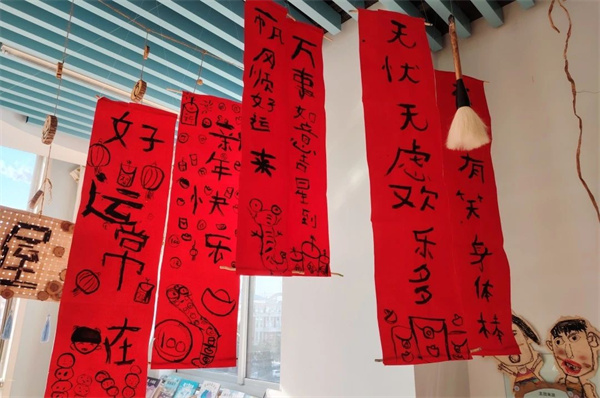 屋
好运常在
新年快乐
帆风顺好运来
万事如意吉星到
无忧无虑欢乐多
有笑身体棒